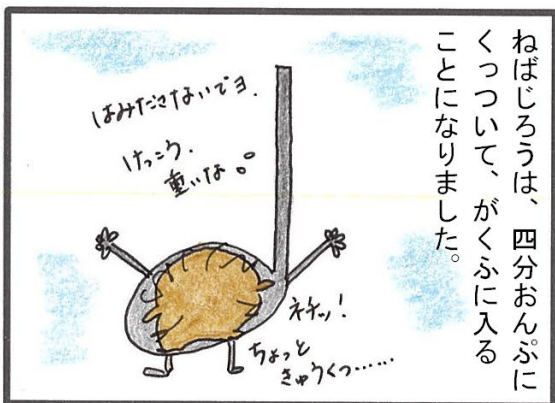 ねばじろうは、四分おんぷに
くっついて、がくふに入る
ことになりました。
はみださないでヨ.
けっこう.
重いな。
ネチッ!
ちょっと
きゅうくつ……